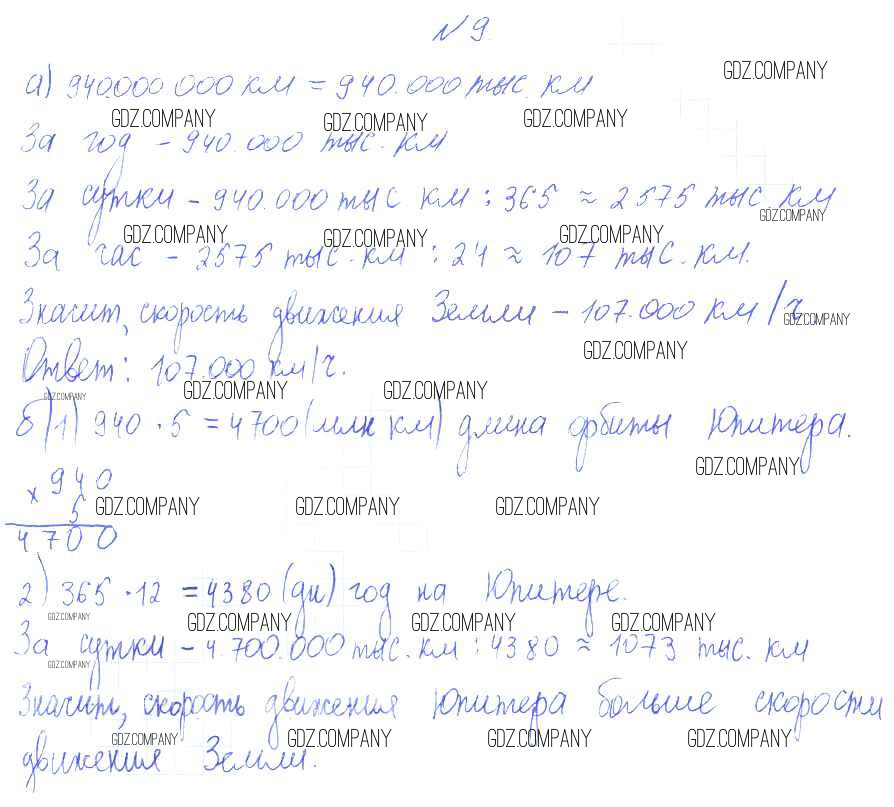 № 9
GDZ.COMPANY
а) 940.000 000 км = 940.000 тыс. км
GDZ.COMPANY GDZ.COMPANY GDZ.COMPANY
За год - 940.000 тыс. км
За сутки - 940.000 тыс. км : 365 ≈ 2575 тыс. км
GDZ.COMPANY
GDZ.COMPANY GDZ.COMPANY GDZ.COMPANY
За час - 2575 тыс. км : 24 ≈ 107 тыс. км.
Значит, скорость движения Земли - 107.000 км/ч
GDZ.COMPANY
GDZ.COMPANY
Ответ: 107.000 км/ч.
GDZ.COMPANY GDZ.COMPANY GDZ.COMPANY
б) 1) 940 · 5 = 4700 (млн км) длина орбиты Юпитера.
GDZ.COMPANY
× 940
5
GDZ.COMPANY GDZ.COMPANY GDZ.COMPANY
4700
2) 365 · 12 = 4380 (дн) год на Юпитере.
GDZ.COMPANY GDZ.COMPANY GDZ.COMPANY GDZ.COMPANY
За сутки - 4.700.000 тыс. км : 4380 ≈ 1073 тыс. км
GDZ.COMPANY
Значит, скорость движения Юпитера больше скорости
GDZ.COMPANY GDZ.COMPANY GDZ.COMPANY GDZ.COMPANY
движения Земли.